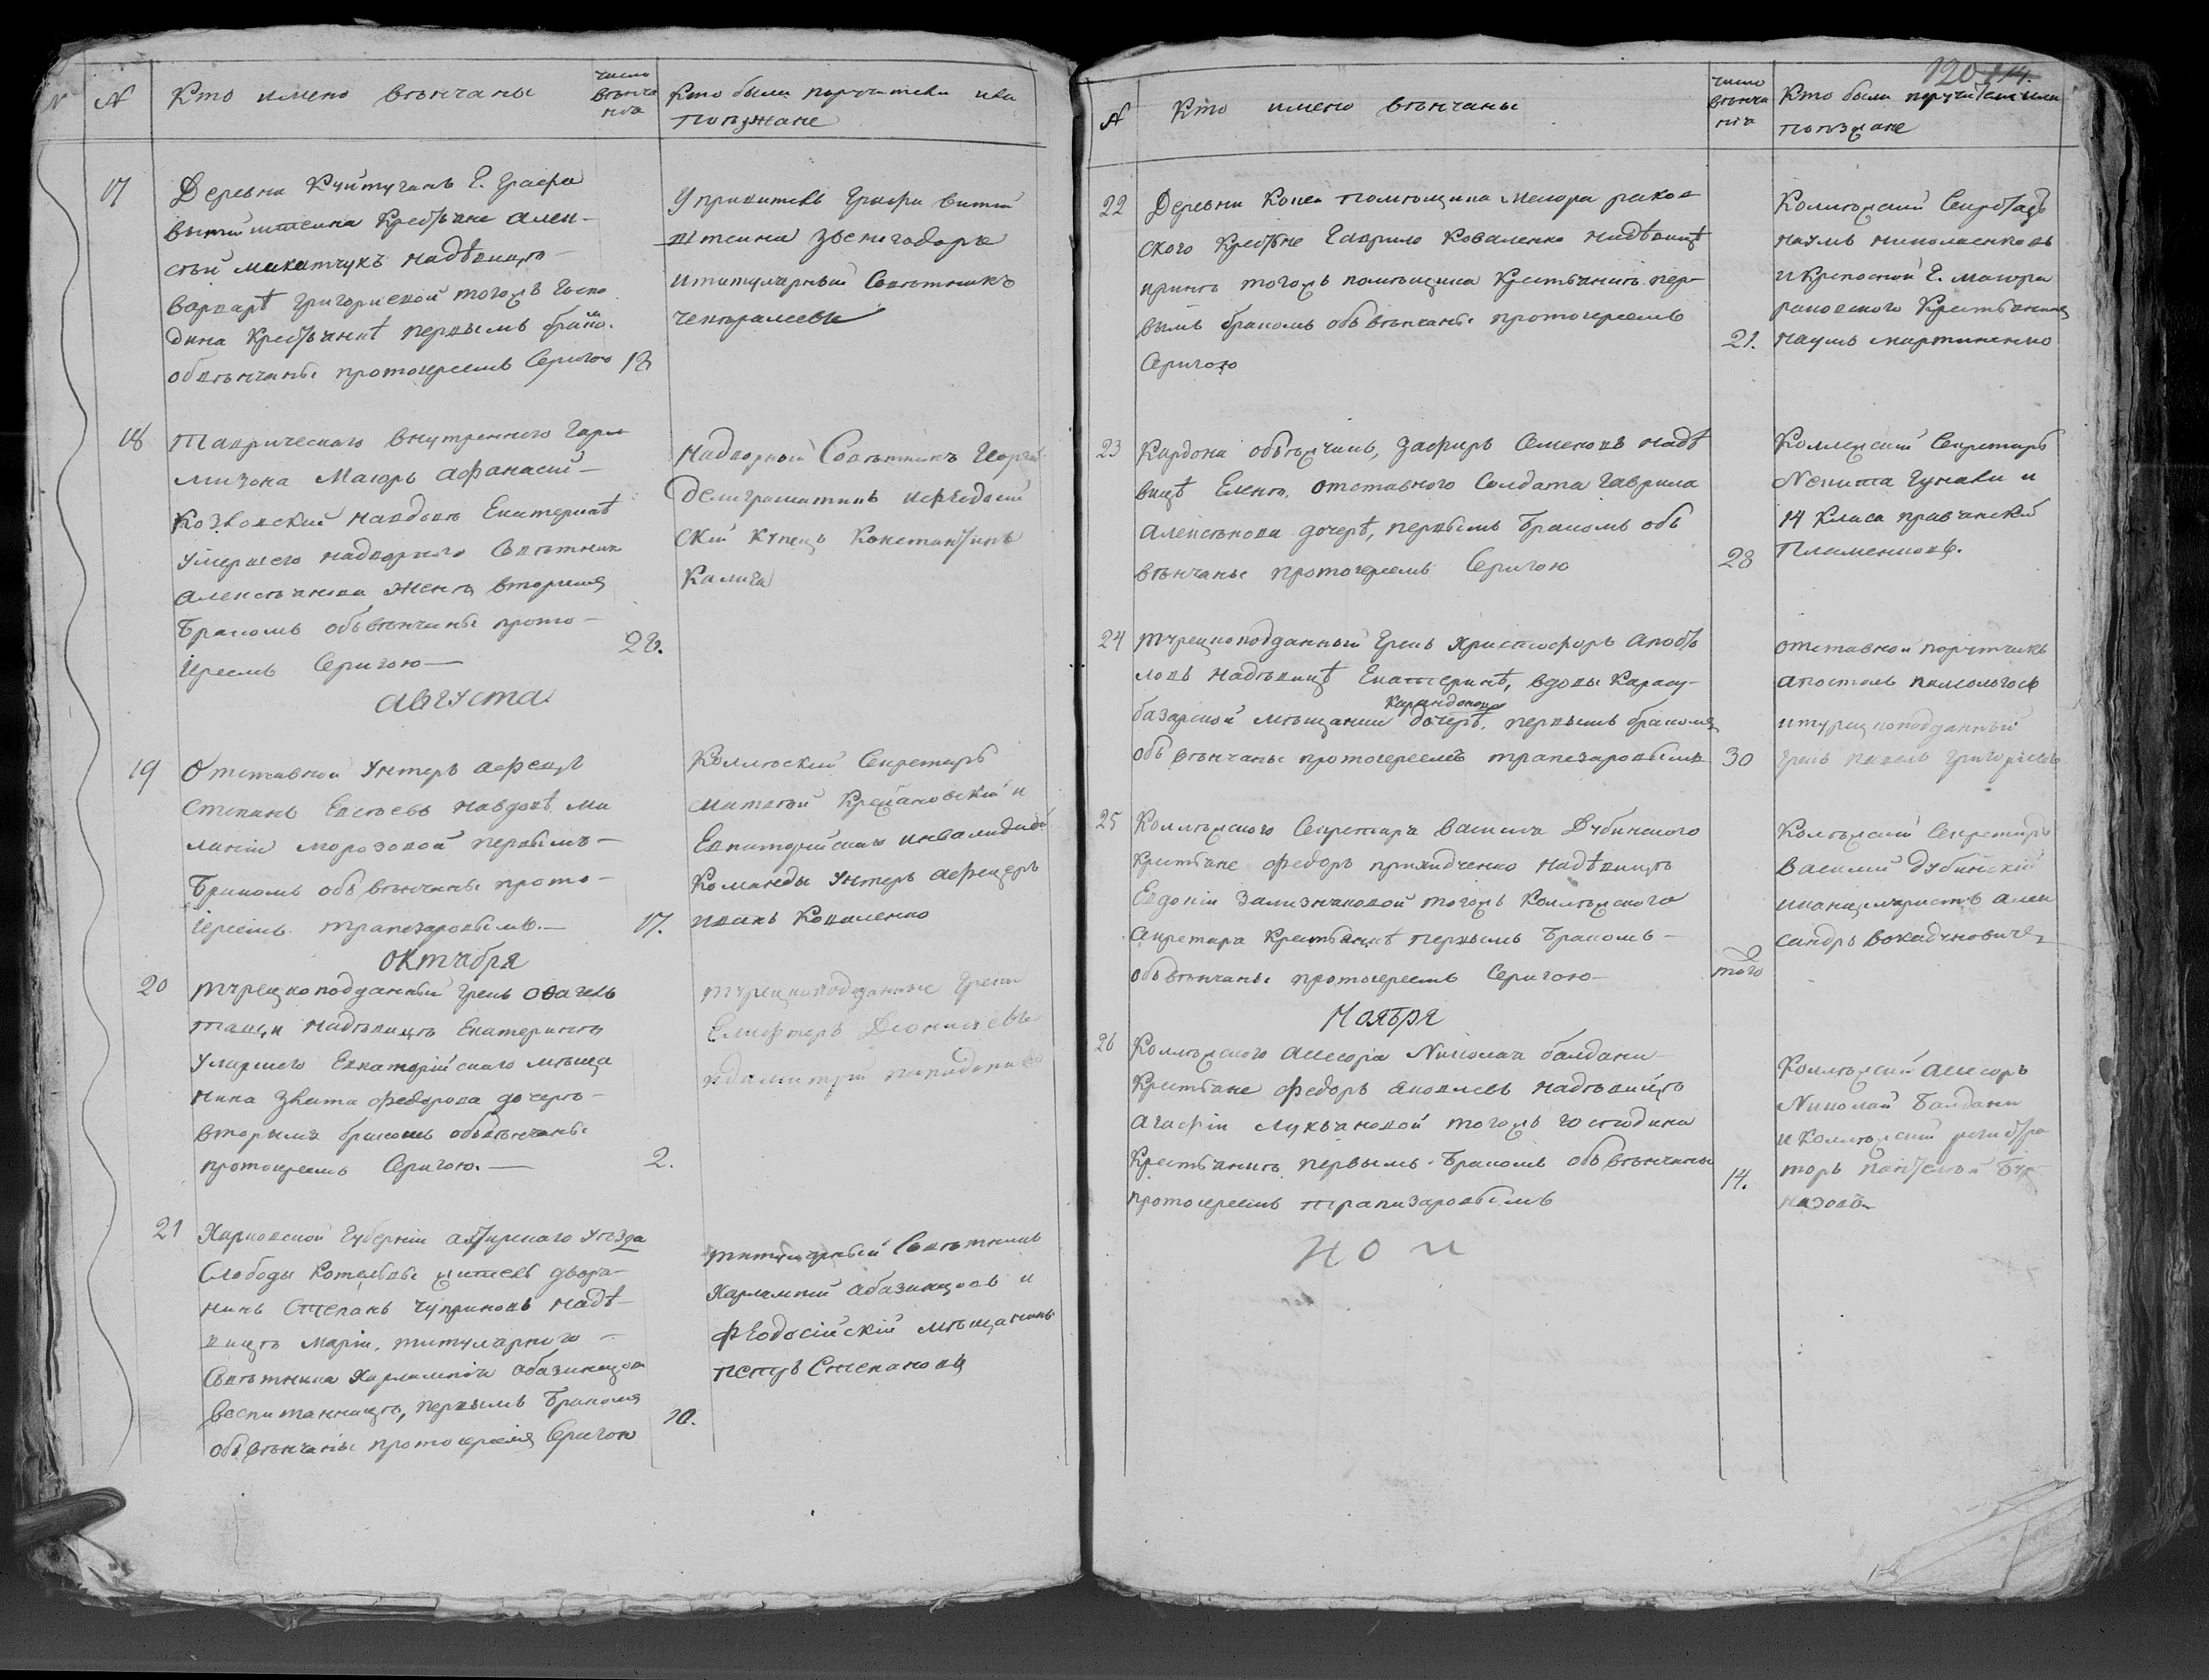 N
№
Кто имено венчаны
число венча нія
Кто были поручители или
поезжане
17
Деревни Куйтуганъ Г. Графа
витгинштеина Крестьяне алек-
сѣй макатчукъ надѣвицѣ
варварѣ Григориевой тогожъ Госпо
дина Крестьянкѣ первымъ брако.
обвѣнчаны протоиреемъ Серигою
Управитель Графа витги
нтеина Звенигодоръ
ититулярный Совѣтникъ
18
Таврическаго внутренного Гарни
мизона Маіоръ афанасий
Козвовский навдовѣ Екатеринѣ
умершего надворного Совѣтника
женѣ вторымъ
бракомъ обвѣнчаны прото-
Іереемъ Серигою
28.
Надворной Совѣтникъ Георгий
Делиграматикъ иофеодосий
ский Купецъ Константинъ
Калига
августа
19
Отставной Унтеръ афецеръ
Степанъ Евсѣевъ навдовѣ Ми
ланіи морозовой первымъ
бракомъ обвѣнчаны прото-
Іереемъ трапезаровымъ.
17.
Колежский Секретарь
матвѣй Крежановский и
Евпаторийскаго инвалидной
Команды Унтеръ афецеръ
иванъ Коваленко
октября
20
турецкоподданный Грекъ
надѣвицѣ Екатеринѣ
умершего Евпаторийскаго мѣща
нина федорова дочерѣ
вторымъ бракомъ обвѣнчаны
протоиреемъ Серигою.
2.
турецкоподданные Греки
Елифтеръ Дионисиевъ
идмитрий
21
Харковской Губерніи ахтирскаго Уѣзда
Слободы Котельвы жител дворя-
нинъ Степанъ Чуприновъ надѣ-
вицѣ Маріи, титулярного
Совѣтника Харлампия абазинцова
воспитанницѣ, первымъ бракомъ
обвѣнчаны протоиереемъ Серигою
10.
титулярный Совѣтникъ
Харлампий абазинцовъ и
феодосійскій мѣщанинъ
петръ Степановъ
120 214.
№
Кто имено венчаны
число венча нія
Кто были поручители или
поезжане
22
Деревни Конел помѣщика Маіора раков
ского Крестьяне Гаврило Коваленко надѣвицѣ
иринѣ тогожъ помѣщика Крестьянкѣ пер-
вымъ бракомъ обвѣнчаны протоиереемъ
Серигою
21.
Колежский Секретарь
наумъ николаенковъ
и Крепосной Г. Маіора
раковского Крестьянинъ
наумъ мартиненко
23
Кардона обѣжчикъ, Зафиръ Семеновъ надѣ
вицѣ Еленѣ, отставного Солдата гаврила
алексѣнова дочерѣ, первымъ бракомъ обь
вѣнчаны протоиереемъ Серигою
28
Коллежский Секретарь
Никита Гунали и
14 Класа
Племенковъ.
24
турецкоподданный Грекъ Христофоръ апост
ловъ надѣвицѣ Екатеринѣ, вдовы Карасу-
базарской мѣщанки дочерѣ, первымъ бракомъ
обь вѣнчаны протоиереемъ трапезаровымъ
30
отставной порутчикъ
апостолъ
итурецкоподданный
Грекъ павелъ Григориевъ
25
Колежского Секретаря василя Дубинского
Крестьяне федоръ надѣвицѣ
Евдокіи Зализняковой тогожъ Колежского
Секретаря Крестьянкѣ первымъ бракомъ
обвѣнчаны протоиереемъ Серигою
того
Колежский Секретарь
василий Дубинский
иканцеляристъ алек
сандръ
Ноября
26
Колежского асесора Николая балдани
Крестьяне федоръ яковлевъ надѣвицѣ
агафіи Лукьяновой тогожъ господина
Крестьянкѣ первымъ бракомъ обь вѣнчаны
протоиереемъ трапизаровымъ
14.
Колежский асесоръ
Николай балдани
и Колежский регистра
торъ пантелей